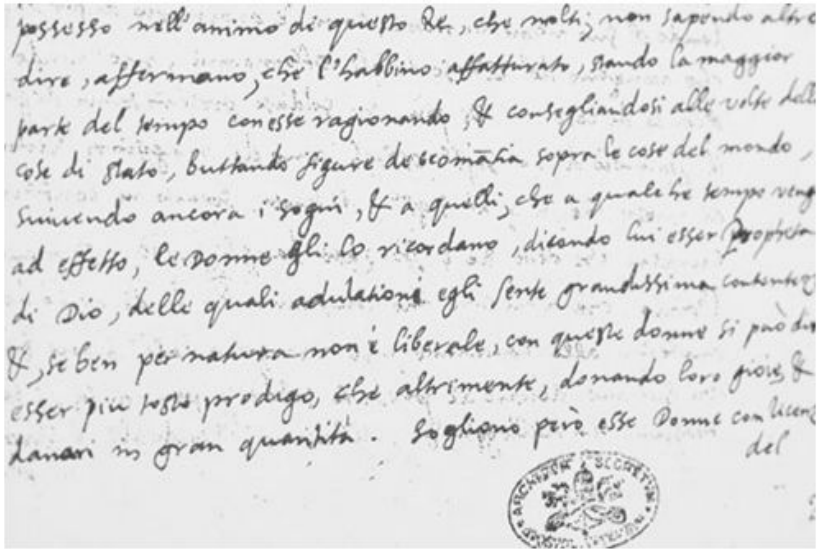 possesso nell'animo di questo Re, che molti, non sapendo altro
dire, affermano, che l'habbino affatturato, stando la maggior
parte del tempo con esse ragionando, & consegliandosi alle volte delle
cose di stato, buttando figure de Geomātia sopra le cose del mondo,
scrivendo ancora i sogni, & a quelli, che a qualche tempo
ad effetto, le Donne gli lo ricordano, dicendo lui esser Propheta
di Dio, delle quali adulationi egli sente grandissima
&, se ben per natura non è liberale, con queste donne si può
esser più tosto prodigo, che altrimente, donando loro gioie, &
danari in gran quantità. Sogliono però esse Donne con
del
ARCHIVUM SECRETUM